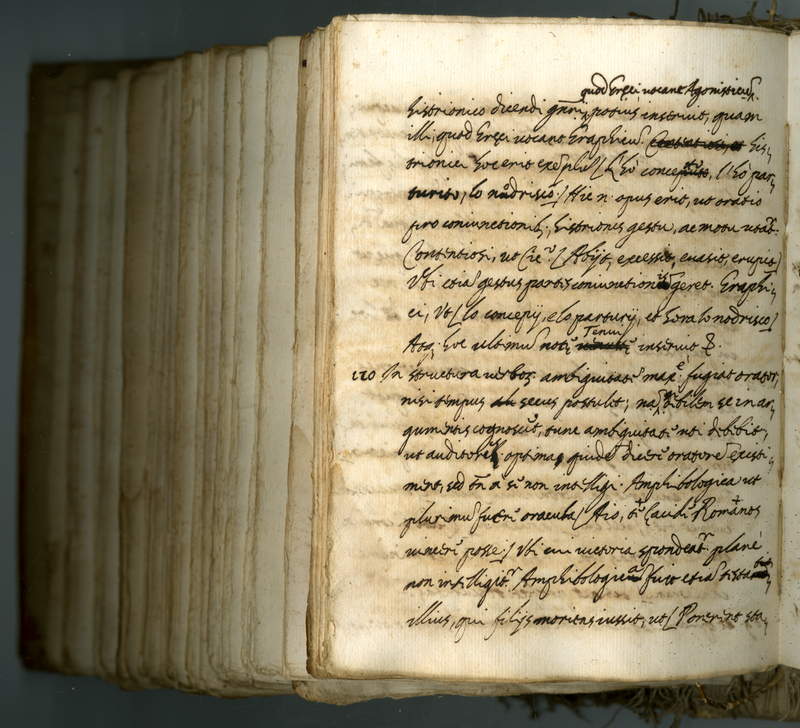 quod Graeci vocant Agonisticu
histrionico dicendi gnri potius inseruit, quam
illi, quod Graeci vocant Graphicu. his,
trionici hoc erit exeplu / L'hò l'hò par,
turito, lo nudrisco / Hic n. opus erit, ut oratio
pro coniunctionib, histriones gestu, ac motu utat.
Contentiosi, ut Cic / Abijt, excessit, evasit, erupit /
Ubi etia gestus partes coniunctionis geret. Graphi,
ci, Ut / lo concepij, e lo parturij, et hora lo nodrisco /
Atq. hoc ultimu Tenui inseruit
110 In structura verbor. ambiguitate max. fugiat orator,
nisi tempus secus postulet; na debilem se in ar,
gumentis cognoscit, tunc ambiguitate uti debebit,
ut auditores optima quide dicere oratore existi,
ment, sed tn a se non intelligi. Amphibologica ut
plurimu fuere oracula / Aio, te Eacide Romanos
vincere posse / Ubi cui victoria spondeat. plane
non intelligit. Amphibologica fuit etia
illius, qui filijs moriens iussit, ut / Ponerent sta,